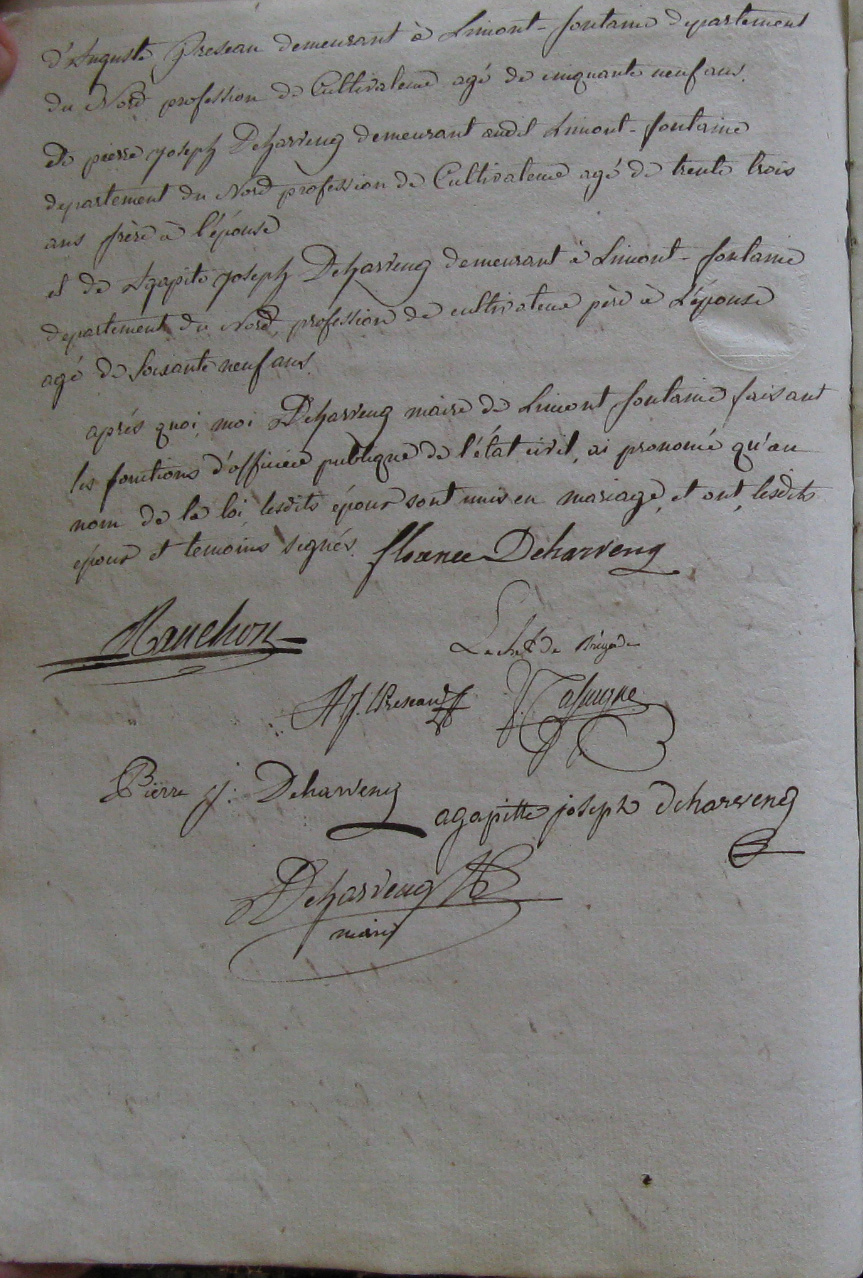 d'Auguste Preseau demeurant à Limont-fontaine departement
du Nord profession de Cultivateur agé de cinquante neuf ans.
et de pierre joseph Deharveng demeurant audit Limont-fontaine
departement du Nord profession de Cultivateur agé de trente trois
ans frère à l'épouse
et de Agapite joseph Deharveng demeurant à Limont-fontaine
departement du Nord, profession de cultivateur père à L'épouse
agé de soixante neuf ans.
après quoi, moi Deharveng maire de Limont fontaine faisant
les fonctions d'officier publique de l'état civil, ai prononcé qu'au
nom de la loi lesdits époux sont unis en mariage, et ont, lesdits
époux et temoins signés. florence Deharveng
Manchon
Le chef de Brigade
A J. Preseau
Pierre j: Deharveng
agapitte joseph deharveng
Deharveng
maire